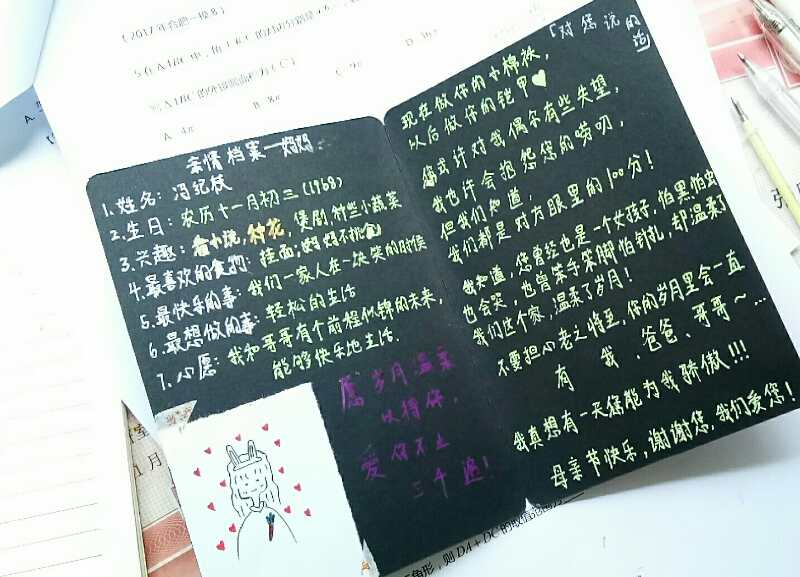 (2017年合肥一模8)
A. 4π
B. 8π
C. 9π
D. 36π
亲情档案—妈妈
1.姓名:冯纪枝
2.生日:农历十一月初三(1968)
3.兴趣:看小说,种花,煲剧,种些小蔬菜
4.最喜欢的食物:挂面;妈妈不挑食
5.最快乐的事:我们一家人在一块笑的时候
6.最想做的事:轻松的生活
7.心愿:我和哥哥有个前程似锦的未来,
能够快乐地生活.
愿岁月温柔
以待你,
爱你不止
三千遍!
「对您说的话」
现在做你的小棉袄,
以后做你的铠甲♥
您或许对我偶尔有些失望,
我也许会抱怨您的唠叨,
但我们知道,
我们都是对方眼里的100分!
我知道,您曾经也是一个女孩子,怕黑怕虫
也会哭,也曾笨手笨脚怕针扎,却温柔了
我们这个家,温柔了岁月!
不要担心老之将至,你的岁月里会一直
有 我、爸爸、哥哥~...
我真想有一天您能为我骄傲!!!
母亲节快乐,谢谢您,我们爱您!